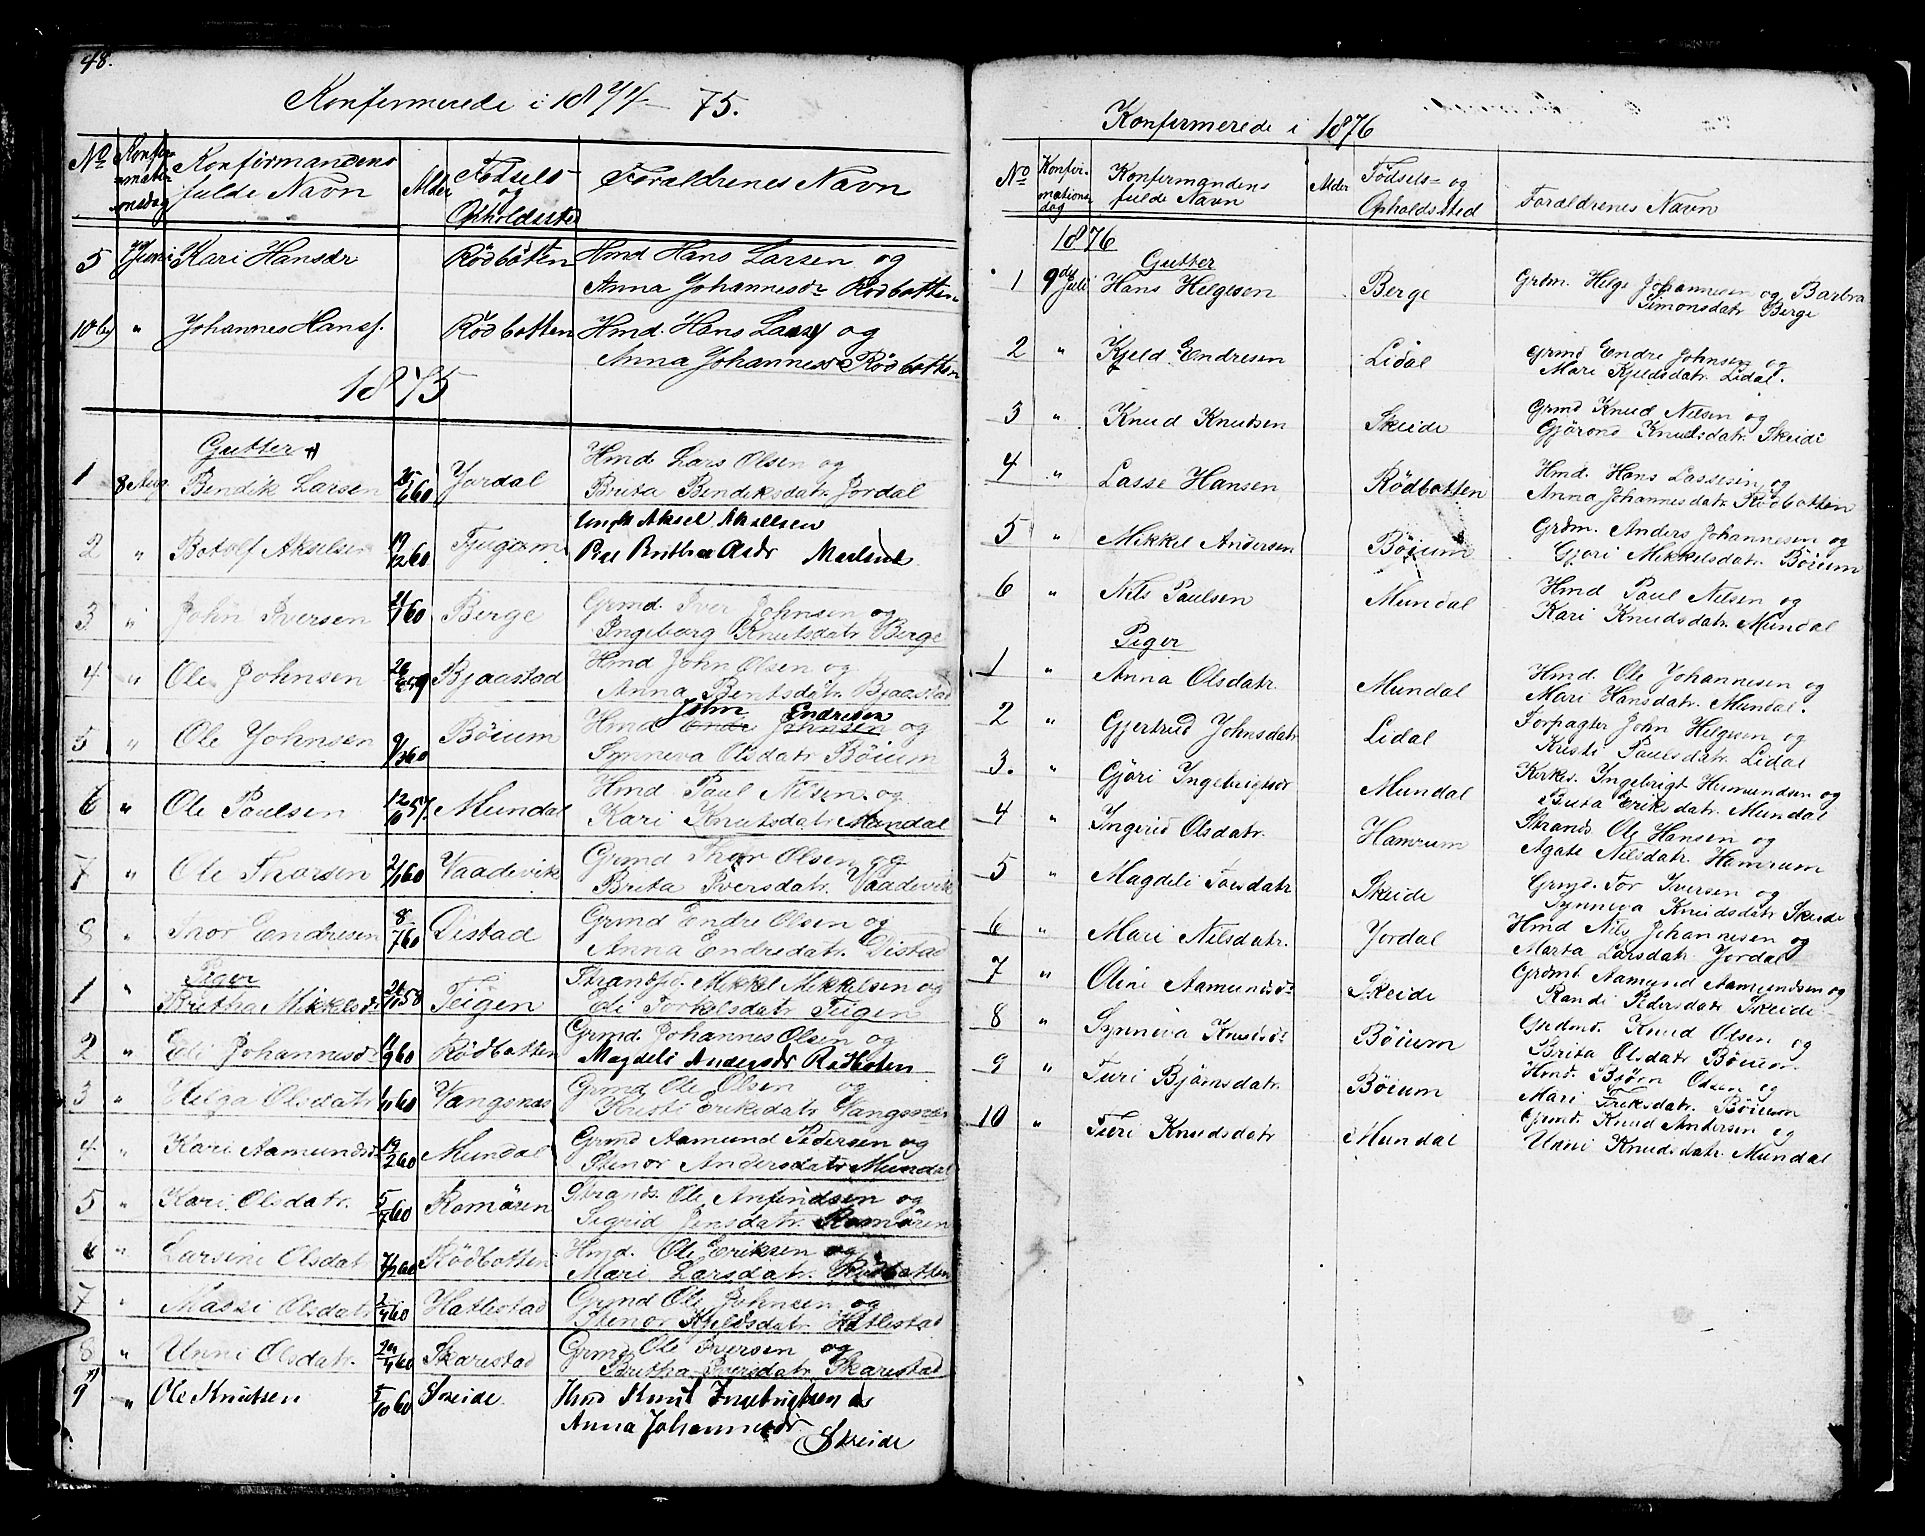 48.
Konfirmerede i 1874 75.
No Konfirmationsdag Konfirmandens fulde Navn Alder Fødsels og Opholdssted Forældrenes Navn
5 Juni Kari Hansdr Rødbotten Hmd Hans Larsen og
Anna Johannesdr Rødbotten
" Johannes Hanss. Rødbotten Hmd. Hans Lassen og
Anna Johannesdr Rødbotten
1875
Gutter
1 8 Aug. Bendik Larsen 60 Jordal Hmd. Lars Olsen og
Brita Bendiksdatr. Jordal
2 " Botolf Akselsen 19/12 60 Tjugum Ungk Aksel Akselsen
Pge Britha Olsdr Mælsnæs
3 " John Iversen 21/1 60 Berge Grmd. Iver Johnsen og
Ingeborg Knutsdatr Berge
4 " Ole Johnsen Bjaastad Hmd John Olsen og
Anna Bentsdatr. Bjaastad
5 " Ole Johnsen 9/3 60 Bøium Hmd John Endresen og
Synneva Olsdatr Bøium
6 " Ole Paulsen 12/10 57. Mundal Hmd. Paul Nilsen og
Kari Knutsdatr Mundal
7 " Ole Thorsen 2/1 60 Vaadevik Grmd Thor Olsen og
Brita Iversdatr. Vaadevik
8 " Thor Endresen 8/7 60 Distad Grmd Endre Olsen og
Anna Endredatr. Distad
Piger
1 " Britha Mikkelsdr 26/11 58 Teigen Strandsd. Mikkel Mikkelsen og
Eli Torkelsdatr Teigen
2 " Eli Johannesdr 11/9 60 Rødbotten Grmd. Johannes Olsen og
Magdeli Andersdr Rødbotten
3 " Helga Olsdatr 1/11 60 Vangsnæs Grmd Ole Olsen og
Kristi Eriksdatr Vangsnæs
4 " Kari Aamundsdr 19/2 60 Mundal Grmd Aamund Pedersen og
Stenor Andersdatr Mundal
5 " Kari Olsdatr. 5/7 60 Romøren Strands. Ole Anfindsen og
Sigrid Jensdatr. Romøren
6 " Larsine Olsdat 7/12 60 Rødbotten Hmd. Ole Eriksen og
Mari Larsdatr. Rødbotten
7 " Massi Olsdatr 2/4 60 Hatlestad Grmd Ole Johnsen og
Stenor Kjeldsdatr. Hatlestad
8 " Unni Olsdatr. 20/4 60 Skarestad Grmd Ole Iversen og
Britha Iversdatr. Skarestad
9 " Ole Knutsen 5/10 60 Skeide Hmd Knut Ingebrigtsen &
Anna Johannesdr
Skeide
Konfirmerede i 1876
No Konfirmationsdag Konfirmandens fulde Navn Alder Fødsels= og Opholdssted Forældrenes Navn
1876
Gutter
1 9de Juli Hans Helgesen Berge Grdm. Helge Johannesen og Barbra
Simonsdatr Berge
2 " Kjeld Endresen Lidal Grmd Endre Johnsen og
Mari Kjeldsdatr. Lidal.
3 " Knud Knudsen Skeide Grmd Knud Nilsen og
Gjørond Knudsdatr. Skeide
4 " Lasse Hansen Rødbotten Hmd. Hans Lassesen og
Anna Johannesdatr. Rødbotten
5 " Mikkel Andersen Bøium Grdm. Anders Johannesen og
Gjøri Mikkelsdatr. Bøium
6 " Nils Paulsen Mundal Hmd Paul Nilsen og
Kari Knudsdatr. Mundal
Piger
1 " Anna Olsdatr. Mundal Hmd. Ole Johannesen og
Mari Hansdatr. Mundal.
2 " Gjertrud Johnsdatr. Lidal Forpagter John Helgesen og
Kristi Paulsdatr. Lidal
3. " Gjøri Ingebrigtsdr Mundal Kirkes. Ingebrigt Humundsen og
Brita Eriksdatr. Mundal
4 " Ingerid Olsdatr. Hamrum Strands. Ole Hansen og
Agate Nilsdatr. Hamrum
5 " Magdeli Torsdatr Skeide Grmd. Tor Iversen og
Synneva Knudsdatr Skeide
6 " Mari Nilsdatr. Jordal Hmd Nils Johannesen og
Marta Larsdatr. Jordal
7 " Oline Aamundsdr Skeide Grdmd Aamund Aamundsen og
Randi Pedersdatr Skeide
8 " Synneva Knudsdr Bøium Grdmd. Knud Olsen og
Brita Olsdatr Bøium
9 " Turi Bjørnsdatr. Bøium Hmd. Bjørn Olsen og
Mari Eriksdatr. Bøium
10 " Turi Knudsdatr Mundal Grmd. Knud Andersen og
Unni Knudsdatr. Mundal